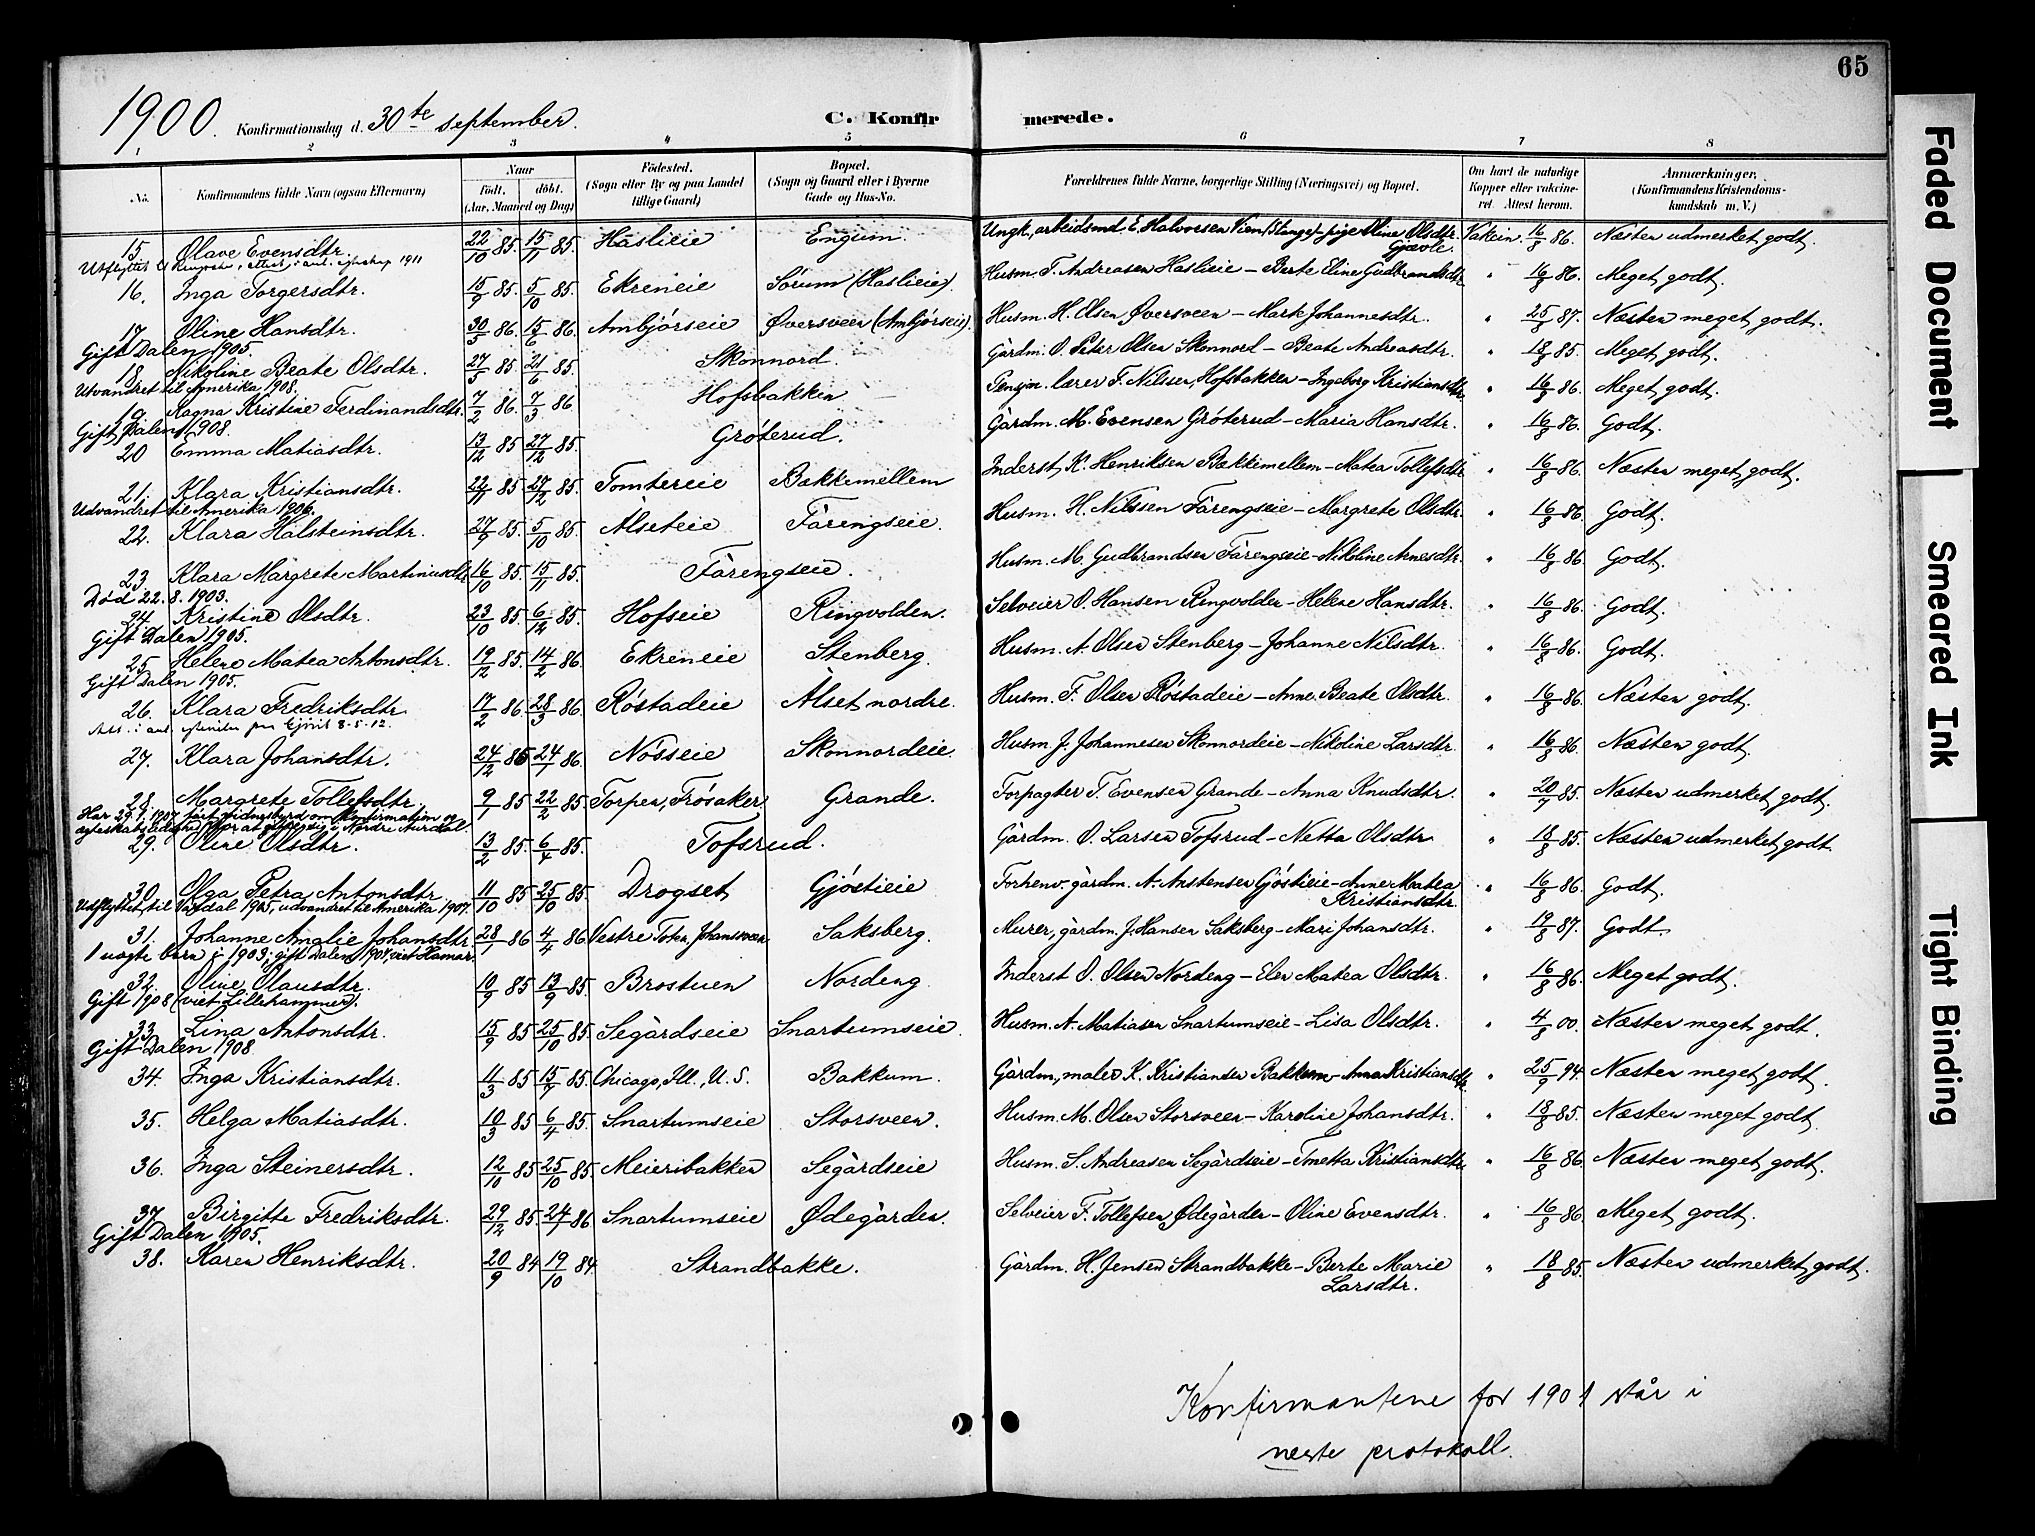 65
1900. Konfirmationsdag d. 30te september. C. Konfirmerede.
1 2 3 4 5 6 7 8
No. Konfirmandens fulde Navn (ogsaa Efternavn) Naar Födt. döbt. (Aar, Maaned og Dag) Födested. (Sogn eller By og paa Landet tillige Gaard) Bopæl. (Sogn og Gaard eller i Byerne Gade og Hus-No. Forældrenes fulde Navne, borgerlige Stilling (Næringsvei) og Bopæl. Om havt de naturlige Kopper eller vakcineret. Attest herom. Anmærkninger. (Konfirmandens Kristendomskundskab m. V.)
15. Olave Evensdtr. 22/10 85. 15/11 85. Haslieie Engum. Ungk., arbeidsmd. E. Halvorsen Vien (Stange) - pige Oline Olsdtr. Gjøvle. Vakcin. 16/8 86. Næsten udmerket godt.
Utflyttet til 1911
16. Inga Torgersdtr. 15/9 85. 5/10 85. Ekreneie Sørum (Haslieie). Husm. T. Andreasen Haslieie - Berte Eline Gudbrandsdtr. " 16/8 86. Meget godt.
17. Oline Hansdtr. 30/3 86. 15/6 86. Ambjørseie Øversveen (Ambjørseie). Husm. H. Olsen Øversveen - Marte Johannesdtr. " 25/8 87. Næsten meget godt.
Gift Dalen 1905.
18. Nikoline Beate Olsdtr. 27/3 85. 21/6 85. Skonnord. Gårdm. O. Peter Olsen Skonnord - Beate Andreasdtr. " 18/8 85. Meget godt.
Utvandret til Amerika 1908.
19. Ragna Kristine Ferdinandsdtr. 7/2 86. 7/3 86. Hofsbakken Pensjon. lærer F. Nilsen, Hofsbakken - Ingeborg Kristiansdtr. " 16/8 86. Meget godt.
Gift Dalen 1908.
20 Emma Matiasdtr. 13/12 85 27/12 85. Grøterud. Gårdm. M. Evensen Grøterud - Maria Hansdtr. " 16/8 86. Godt.
21. Klara Kristiansdtr. 22/11 85 27/12 85. Tomtereie Bækkemellem Inderst K. Henriksen Bækkemellem - Matea Tollefsdtr. " 16/8 86. Næsten meget godt.
Udvandret til Amerika 1906.
22. Klara Halsteinsdtr. 27/7 85. 5/10 85. Alseteie Fårengseie. Husm. H. Nilssen Fårengseie - Margrete Olsdtr. " 16/8 86. Godt.
23 Klara Margrete Martinusdtr. 16/10 85. 15/11 85. Fårengseie. Husm. M. Gudbrandsen Fårengseie - Nikoline Arnesdtr. " 16/8 86. Godt.
Død 22.8.1903.
24. Kristine Olsdtr. 23/10 85 6/12 85. Hofseie Ringvolden. Selveier O. Hansen Ringvolden - Helene Hansdtr. " 16/8 86. Godt.
Gift Dalen 1905.
25 Helene Matea Antonsdtr. 19/12 85. 14/2 86. Ekreneie Stenberg. Husm. A. Olsen Stenberg - Johanne Nilsdtr. " 16/8 86. Godt.
Gift Dalen 1905.
26. Klara Fredriksdtr. 17/2 86. 28/3 86. Røstadeie Alset nordre. Husm. F. Olsen Røstadeie - Anne Beate Olsdtr. " 16/8 86. Næsten godt.
Gjøvik 8-5-12.
27. Klara Johansdtr. 24/12 85 24/1 86. Nøsseie Skonnordeie. Husm. J. Johannesen Skonnordeie - Nikoline Larsdtr. " 16/8 86. Næsten godt.
28. Margrete Tollefsdtr. 9/1 85 22/2 85. Torpen, Frøsaker Grande. Forpagter T. Evensen Grande - Anna Knudsdtr. " 20/7 85. Næsten udmerket godt.
Har 29.1.1907 fåt vidnesbyrd om konfirmation og ægteskabsledighed for at gifte sig i Nordre Aurdal.
29. Oline Olsdtr. 13/2 85. 6/4 85. Tofsrud. Gårdm. O. Larsen Tofsrud - Netta Olsdtr. " 18/8 85. Næsten udmerket godt.
30. Olga Petra Antonsdtr. 11/10 85 25/10 85. Drogset Gjøstieie Forhenv. gårdm. A. Anstensen Gjøstieie - Anne Matea Kristiansdtr. " 16/8 86. Godt.
Udflyttet til Vardal 1905, udvandret til Amerika 1907.
31. Johanne Amalie Johansdtr. 28/1 86 4/4 86. Vestre Toten, Johansveen Saksberg. Murer, gårdm. J. Hansen Saksberg - Mari Johansdtr. " 19/8 87. Godt.
1 uægte barn i 1903; gift Dalen 1904, viet Hamar.
32. Oline Olausdtr. 10/9 85 13/9 85. Brostuen Nordeng. Inderst O. Olsen Nordeng - Elen Matea Olsdtr. " 16/8 86. Meget godt.
Gift 1908 (viet Lillehammer).
33. Lina Antonsdtr. 15/9 85 25/10 85. Segårdseie Snartumseie. Husm. A. Matiasen Snartumseie - Lisa Olsdtr. " 4/8 00. Næsten meget godt.
Gift Dalen 1908
34. Inga Kristiansdtr. 11/3 85 15/7 85. Chicago, Ill., U. S. Bakkum. Gårdm., maler K. Kristiansen Bakkum - Anna Kristiansdtr. " 25/9 94. Næsten meget godt.
35. Helga Matiasdtr. 10/3 85 6/4 85. Snartumseie Storsveen. Husm. M. Olsen Storsveen - Karoline Johansdtr. " 18/8 85. Næsten meget godt.
36. Inga Steinersdtr. 12/10 85 25/10 85. Meieribakken Segårdseie Husm. S. Andreasen Segårdseie - Tonetta Kristiansdtr. " 16/8 86. Næsten meget godt.
37. Birgitte Fredriksdtr. 29/12 85. 24/1 86 Snartumseie Ødegården. Selveier F. Tollefsen Ødegården - Oline Evensdtr. " 16/8 86. Meget godt.
Gift Dalen 1905.
38. Karen Henriksdtr. 20/9 84 19/10 84. Strandbakke. Gårdm. H. Jensen Strandbakke - Berte Marie Larsdtr. " 18/8 85. Næsten udmerket godt.
Konfirmantene for 1901 står i
neste protokoll.
Faded Document
Smeared Ink
Tight Binding